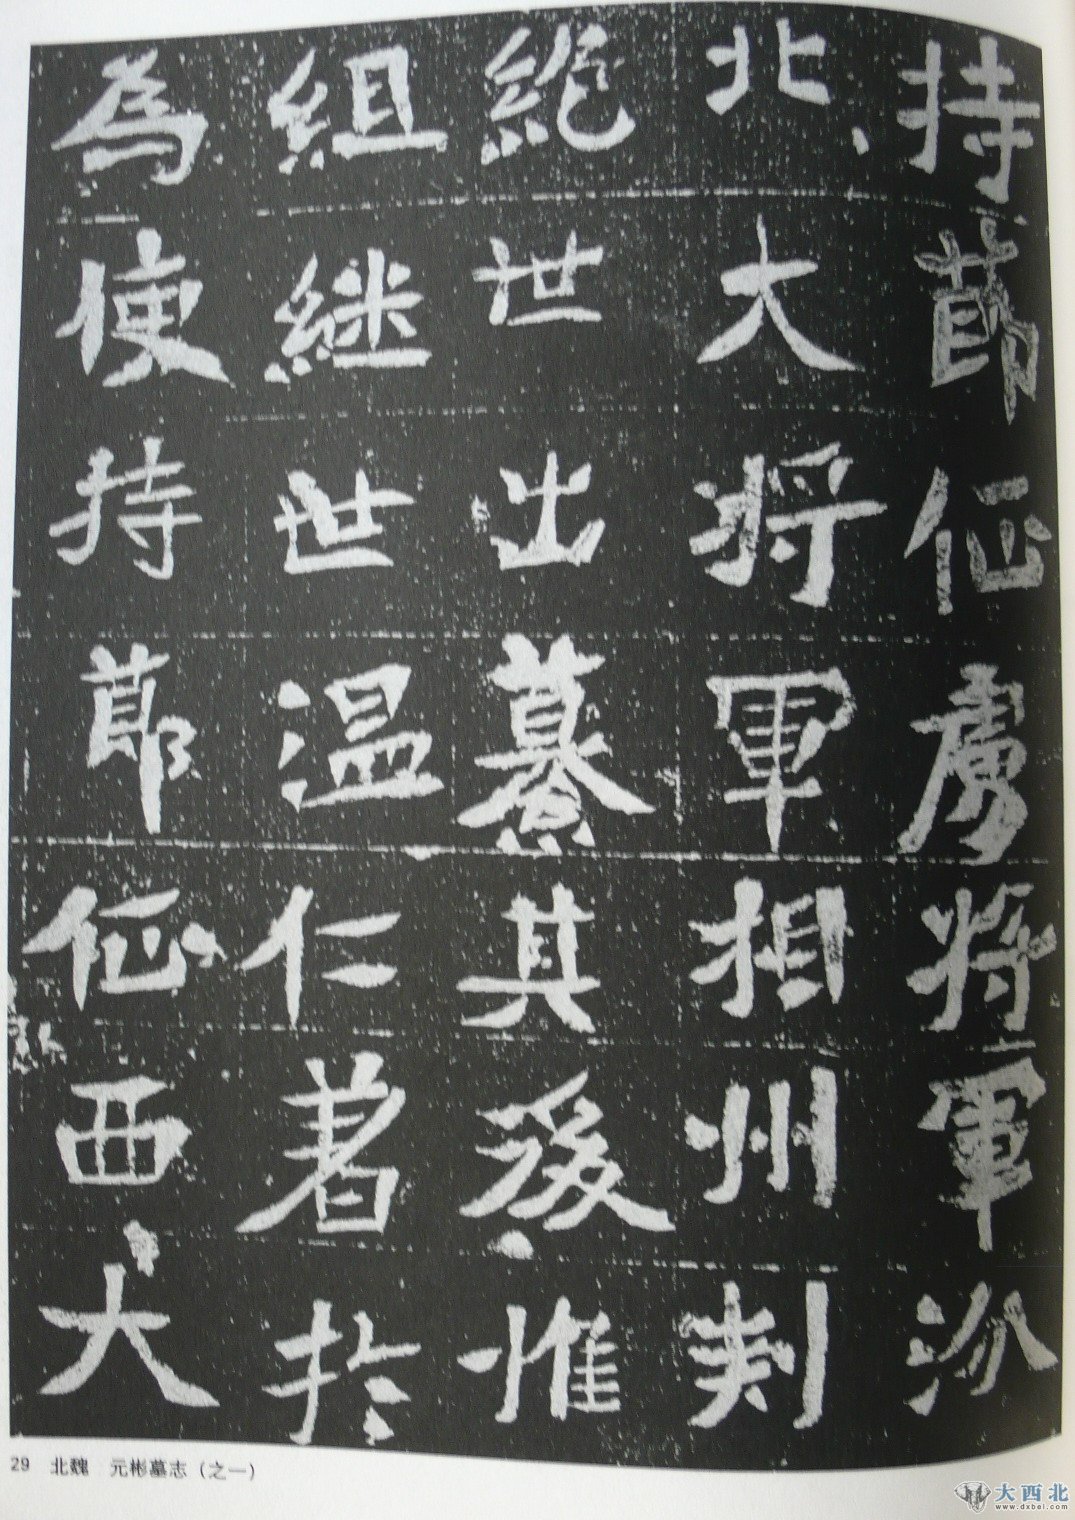 持節征虜将軍汾
北大将軍相州刾
絶世出纂其後惟
組継世温仁著於
為使持節征西大
29 北魏 元彬墓志（之一）
大西北
www.dxbei.com